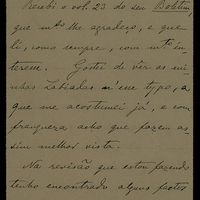 Recebi o vol. 23 do seu Boletim,
que mto lhe agradeço, e que
li, como sempre, com mto in-
teresse. Gostei de ver as mi-
nhas Labiadas n'esse typo, a
que me acostumei já, e com
franqueza acho que fazem as-
sim melhor vista.
Na revisão que estou fazendo
tenho encontrado alguns factos